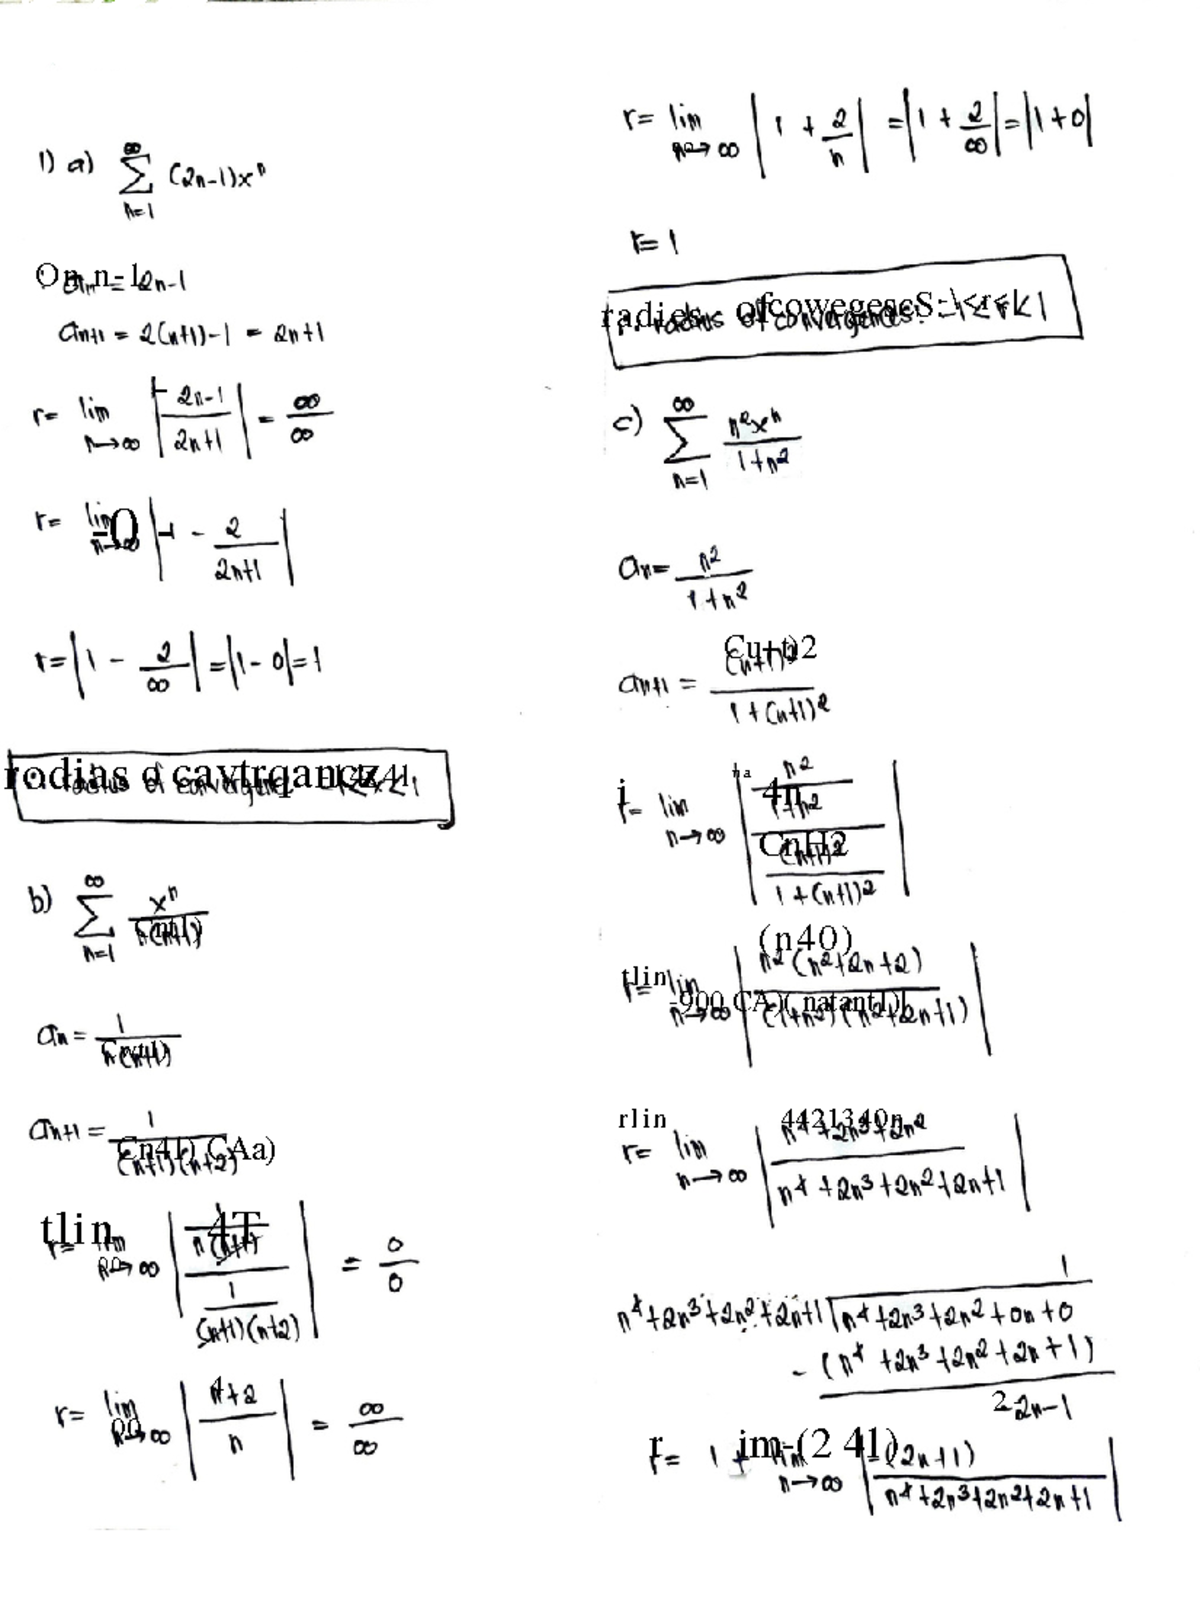 1) a) ∞
∑ (2n-1)xⁿ
n=1
aₙ = 2n-1
aₙ₊₁ = 2(n+1)-1 = 2n+1
r= lim | 2n-1 / 2n+1 | = ∞/∞
n→∞
r= lim | 1 - 2 / 2n+1 |
n→∞
r= | 1 - 2/∞ | = |1-0| = 1
b) ∞
∑ xⁿ / n(n+1)
n=1
aₙ = 1 / n(n+1)
aₙ₊₁ = 1 / (n+1)(n+2)
r= lim | 1/n(n+1) / 1/(n+1)(n+2) | = 0/0
n→∞
r= lim | n+2 / n | = ∞/∞
n→∞
r= lim | 1 + 2/n | = |1 + 2/∞| = |1+0|
n→∞
r=1
∴ radius of convergence: -1<r<1
c) ∞
∑ n²xⁿ / 1+n²
n=1
aₙ= n² / 1+n²
aₙ₊₁ = (n+1)² / 1+(n+1)²
r= lim | n²/1+n² / (n+1)²/1+(n+1)² |
n→∞
r= lim | n²(n²+2n+2) / (1+n²)(n²+2n+1) |
n→∞
r= lim | n⁴+2n³+2n² / n⁴+2n³+2n²+2n+1 |
n→∞
1
n⁴+2n³+2n²+2n+1 | n⁴+2n³+2n²+0n+0
-(n⁴+2n³+2n²+2n+1)
-2n-1
r= 1 + lim | -(2n+1) / n⁴+2n³+2n²+2n+1 |
n→∞